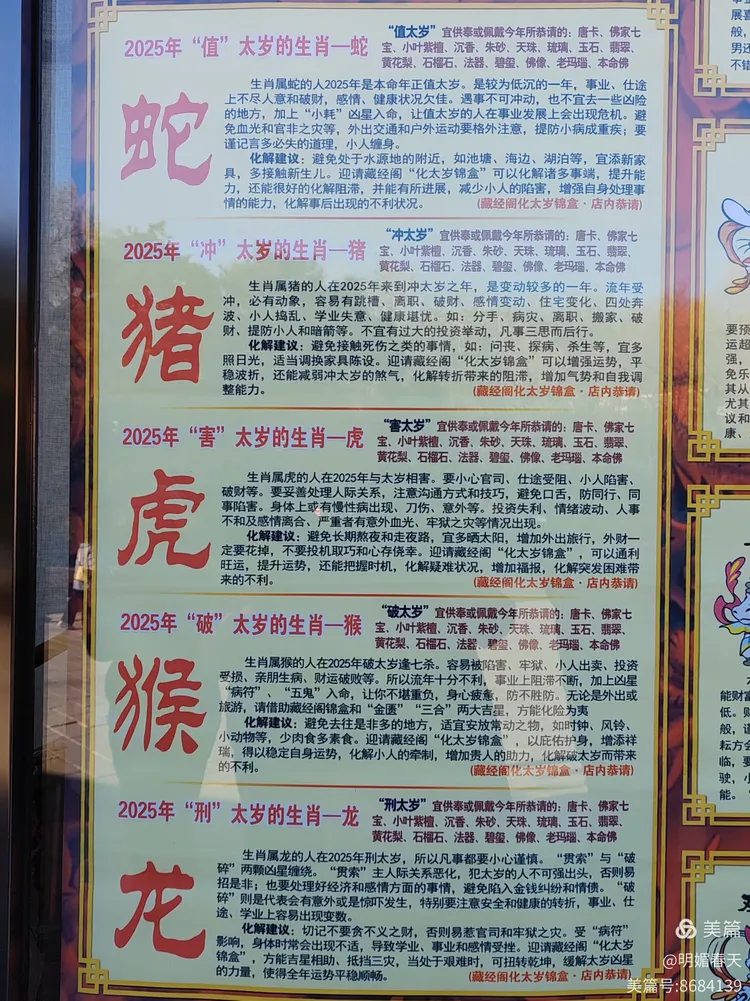 2025年“值”太岁的生肖—蛇
“值太岁”宜供奉或佩戴今年所恭请的：唐卡、佛家七
宝、小叶紫檀、沉香、朱砂、天珠、琉璃、玉石、翡翠、
黄花梨、石榴石、法器、碧玺、佛像、老玛瑙、本命佛
蛇
生肖属蛇的人2025年是本命年正值太岁。是较为低沉的一年，事业、仕途
上不尽人意和破财，感情、健康状况欠佳。遇事不可冲动，也不宜去一些凶险
的地方，加上“小耗”凶星入命，让值太岁的人在事业发展上会出现危机。避
免血光和官非之灾等，外出交通和户外运动要格外注意，提防小病成重疾；要
谨记言多必失的道理，小人缠身。
化解建议：避免处于水源地的附近，如池塘、海边、湖泊等，宜添新家
具，多接触新生儿。迎请藏经阁“化太岁锦盒”可以化解诸多事端，提升能
力，还能很好的化解阻滞，并能有所进展，减少小人的陷害，增强自身处理事
情的能力，化解事后出现的不利状况。
(藏经阁化太岁锦盒·店内恭请)
2025年“冲”太岁的生肖—猪
“冲太岁”宜供奉或佩戴今年所恭请的：唐卡、佛家七
宝、小叶紫檀、沉香、朱砂、天珠、琉璃、玉石、翡翠、
黄花梨、石榴石、法器、碧玺、佛像、老玛瑙、本命佛
猪
生肖属猪的人在2025年来到冲太岁之年，是变动较多的一年。流年受
冲，必有动象，容易有跳槽、离职、破财、感情变动、住宅变化、四处奔
波、小人捣乱、学业失意、健康堪忧。如：分手、病灾、离职、搬家、破
财、提防小人和暗箭等。不宜有过大的投资举动，凡事三思而后行。
化解建议：避免接触死伤之类的事情，如：问丧、探病、杀生等，宜多
照日光，适当调换家具陈设。迎请藏经阁“化太岁锦盒”可以增强运势，平
稳波折，还能减弱冲太岁的煞气，化解转折带来的阻滞，增加气势和自我调
整能力。
(藏经阁化太岁锦盒·店内恭请)
2025年“害”太岁的生肖—虎
“害太岁”宜供奉或佩戴今年所恭请的：唐卡、佛家七
宝、小叶紫檀、沉香、朱砂、天珠、琉璃、玉石、翡翠、
黄花梨、石榴石、法器、碧玺、佛像、老玛瑙、本命佛
虎
生肖属虎的人在2025年与太岁相害。要小心官司、仕途受阻、小人陷害、
破财等。要妥善处理人际关系，注意沟通方式和技巧，避免口舌，防同行、同
事陷害。身体上或有慢性病出现、刀伤、意外等。投资失利、情绪波动、人事
不和及感情离合、严重者有意外血光、牢狱之灾等情况出现。
化解建议：避免长期熬夜和走夜路，宜多晒太阳，增加外出旅行，外财一
定要花掉，不要投机取巧和心存侥幸。迎请藏经阁“化太岁锦盒”，可以通利
旺运，提升运势，还能把握时机，化解疑难状况，增加福报，化解突发困难带
来的不利。
(藏经阁化太岁锦盒·店内恭请)
2025年“破”太岁的生肖—猴
“破太岁”宜供奉或佩戴今年所恭请的：唐卡、佛家七
宝、小叶紫檀、沉香、朱砂、天珠、琉璃、玉石、翡翠、
黄花梨、石榴石、法器、碧玺、佛像、老玛瑙、本命佛
猴
生肖属猴的人在2025年破太岁逢七杀。容易被陷害、牢狱、小人出卖、投资
受损、亲朋生病、财运破败等。所以流年十分不利，事业上阻滞不断，加上凶星
“病符”、“五鬼”入命，让你不堪重负，身心疲惫，防不胜防。无论是外出或
旅游，请借助藏经阁锦盒和“金匮”“三合”两大吉星，方能化险为夷
化解建议：避免去往是非多的地方，适宜安放常动之物，如时钟、风铃、
小动物等，少肉食多素食。迎请藏经阁“化太岁锦盒”，以庇佑护身，增添祥
瑞，得以稳定自身运势，化解小人的牵制，增加贵人的助力，化解破太岁而带来
的不利。
(藏经阁化太岁锦盒·店内恭请)
2025年“刑”太岁的生肖—龙
“刑太岁”宜供奉或佩戴今年所恭请的：唐卡、佛家七
宝、小叶紫檀、沉香、朱砂、天珠、琉璃、玉石、翡翠、
黄花梨、石榴石、法器、碧玺、佛像、老玛瑙、本命佛
龙
生肖属龙的人在2025年刑太岁，所以凡事都要小心谨慎。“贯索”与“破
碎”两颗凶星缠绕。“贯索”主人际关系恶化，犯太岁的人不可强出头，否则易
招是非；也要处理好经济和感情方面的事情，避免陷入金钱纠纷和情债。“破
碎”则是代表会有意外或是惊吓发生，特别要注意安全和健康的转折，事业、仕
途、学业上容易出现变数。
化解建议：切记不要贪不义之财，否则易惹官司和牢狱之灾。受“病符”
影响，身体时常会出现不适，导致学业、事业和感情受挫。迎请藏经阁“化太岁
锦盒”，方能吉星相助、抵挡三灾，当处于艰难时，可扭转乾坤，缓解太岁凶星
的力量，使得全年运势平稳顺畅。
(藏经阁化太岁锦盒·店内恭请)
美篇
@明媚春天
美篇号:8684139